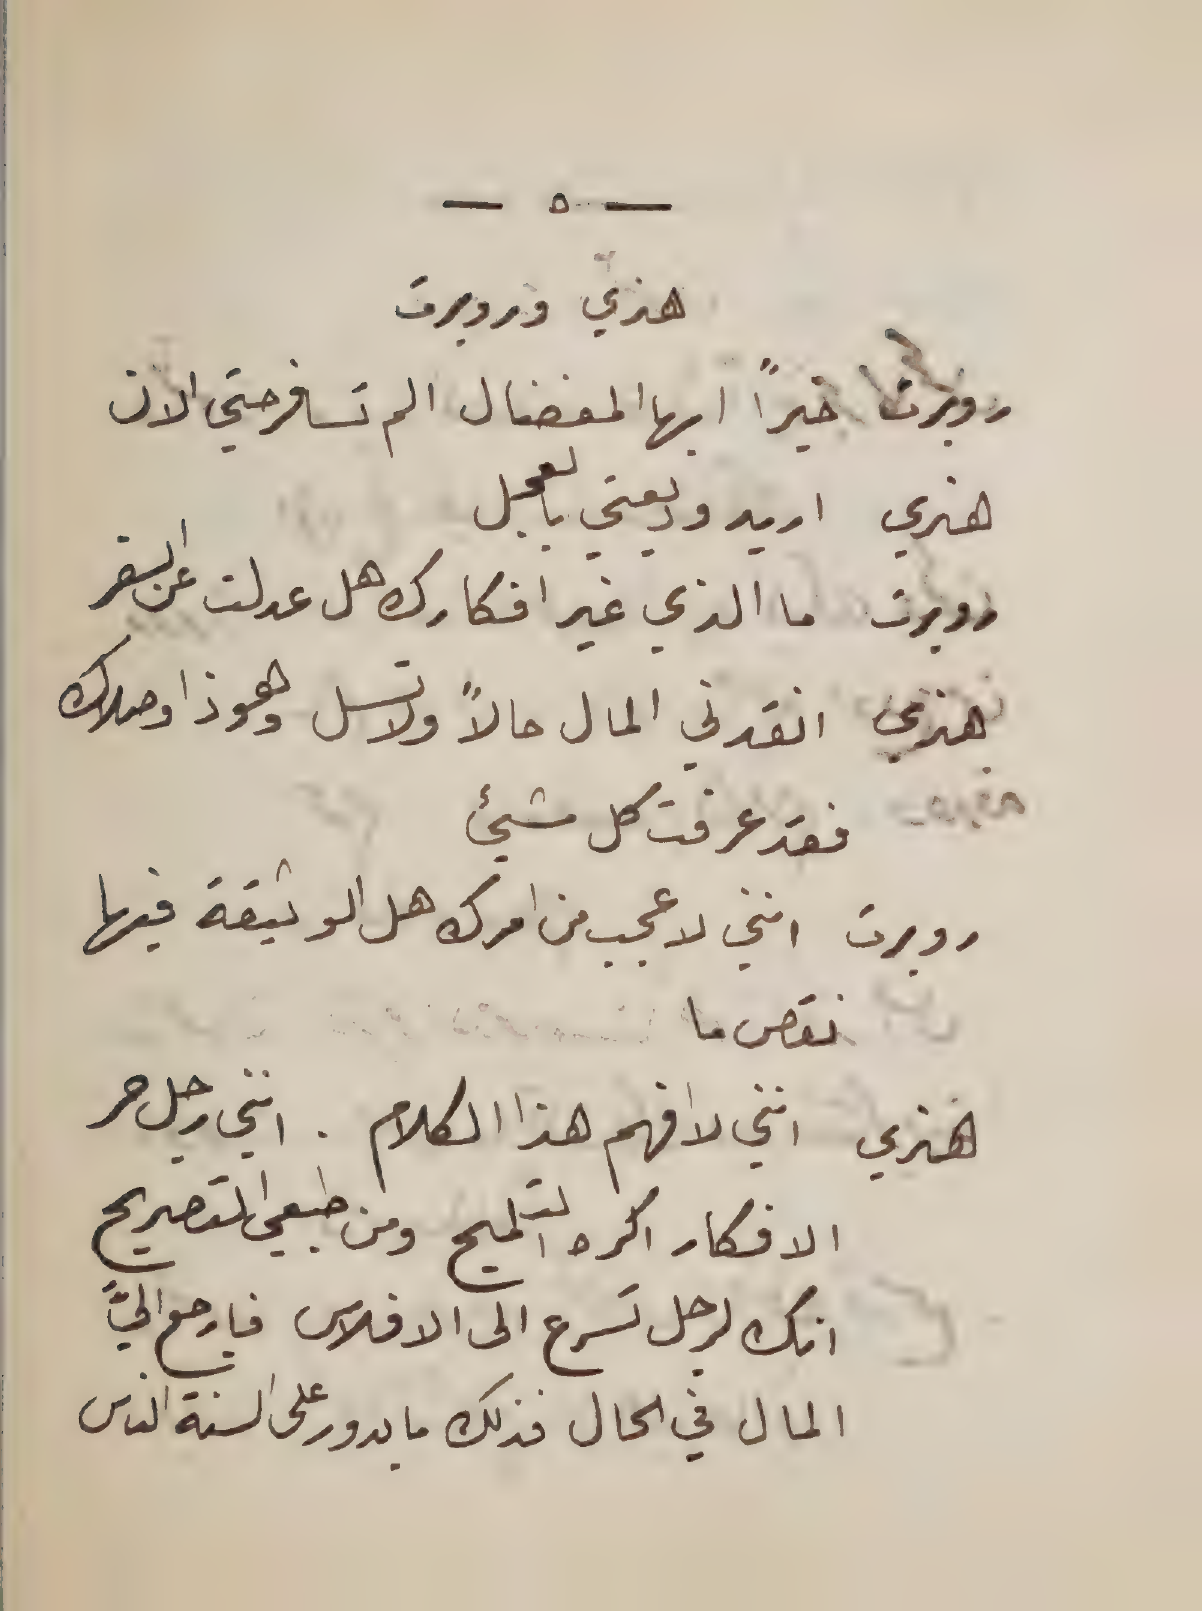 — ٥ —
هنري وروبرت
روبرت خيراً ايها المفضال الم تسافر حتى الان
هنري اريد وديعتي بالعجل
روبرت ما الذي غير افكارك هل عدلت عن السفر
هنري انقدني المال حالاً ولا تسل وهوذا وصلاك
فقد عرفت كل شيئ
روبرت انني لاعجب من امرك هل الوثيقة فيها
نقص ما
هنري انني لا افهم هذا الكلام . انني رجل حر
الافكار اكره التلميح ومن طبعي التصريح
انك لرجل تسرع الى الافلاس فارجع اليَّ
المال في الحال فذلك ما يدور على السنة الناس